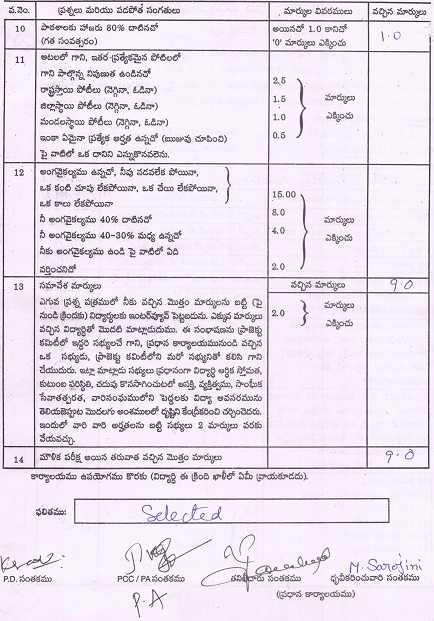 వ.నెం. ప్రశ్నలు మరియు పడపోత సంగతులు మార్కుల వివరములు వచ్చిన మార్కులు
10 పాఠశాలకు హాజరు 80% దాటినచో అయినచో 1.0 కానిచో 1.0
(గత సంవత్సరం) '0' మార్కులు ఎక్కించు
11 ఆటలలో గాని, ఇతర ప్రత్యేకమైన పోటీలలో
గాని పాల్గొన్న నిపుణత ఉండినచో 2.5
రాష్ట్రస్థాయి పోటీలు (నెగ్గినా, ఓడినా) 1.5 మార్కులు
జిల్లాస్థాయి పోటీలు (నెగ్గినా, ఓడినా) 1.0 ఎక్కించు
మండలస్థాయి పోటీలు (నెగ్గినా, ఓడినా)
ఇంకా ఏమైనా ప్రత్యేక అర్హత ఉన్నచో (ఋజువు చూపించి) 0.5
పై వాటిలో ఒక దానిని ఎన్నుకొనవలెను.
12 అంగవైకల్యము ఉన్నచో, నీవు నడవలేక పోయినా,
ఒక కంటి చూపు లేకపోయినా, ఒక చేయి లేకపోయినా, 15.00
ఒక కాలు లేకపోయినా 8.0
నీ అంగవైకల్యము 40% దాటినచో 4.0 మార్కులు
నీ అంగవైకల్యము 40-30% మధ్య ఉన్నచో ఎక్కించు
నీకు అంగవైకల్యము ఉండి పై వాటిలో ఏది
వర్తించనిచో 2.0
13 సమావేశ మార్కులు వచ్చిన మార్కులు 9.0
ఎగువ ప్రశ్న పత్రములో నీకు వచ్చిన మొత్తం మార్కులను బట్టి (పై
నుండి క్రిందకు) విద్యార్థులకు ఇంటర్వ్యూవ్ పెట్టబడును. ఎక్కువ మార్కులు 2.0 మార్కులు
వచ్చిన విద్యార్థితో మొదటి మాట్లాడుదుము. ఈ సంభాషణను ప్రాజెక్టు ఎక్కించు
కమిటీలో ఇద్దరి సభ్యులచే గాని, ప్రధాన కార్యాలయమునుండి వచ్చిన
ఒక సభ్యుడు, ప్రాజెక్టు కమిటీలోని మరో సభ్యునితో కలిసి గాని
చేయుదురు. ఇట్లా మాట్లాడు సభ్యులు ప్రధానంగా విద్యార్థి ఆర్థిక స్తోమత,
కుటుంబ పరిస్థితి, చదువు కొనసాగించుటలో ఆసక్తి, వ్యక్తిత్వము, సాంఘిక
సేవాతత్పరత, వారిసంఘములోని పెద్దలకు విద్యా అవసరమును
తెలియజెప్పుట మొదలగు అంశములలో దృష్టిని కేంద్రీకరించి చర్చించెదరు.
ఇందులో వారి వారి అర్హతలను బట్టి సభ్యులు 2 మార్కులు వరకు
వేయవచ్చు.
14 మౌళిక పరీక్ష అయిన తరువాత వచ్చిన మొత్తం మార్కులు 9.0
కార్యాలయము ఉపయోగము కొరకు (విద్యార్థి ఈ క్రింది ఖాళీలో ఏమీ వ్రాయకూడదు).
ఫలితము: Selected
M. Sarojini
P.D. సంతకము PCC / PA సంతకము తనిఖీదారు సంతకము ధృవీకరించువారి సంతకము
P.A (ప్రధాన కార్యాలయము)